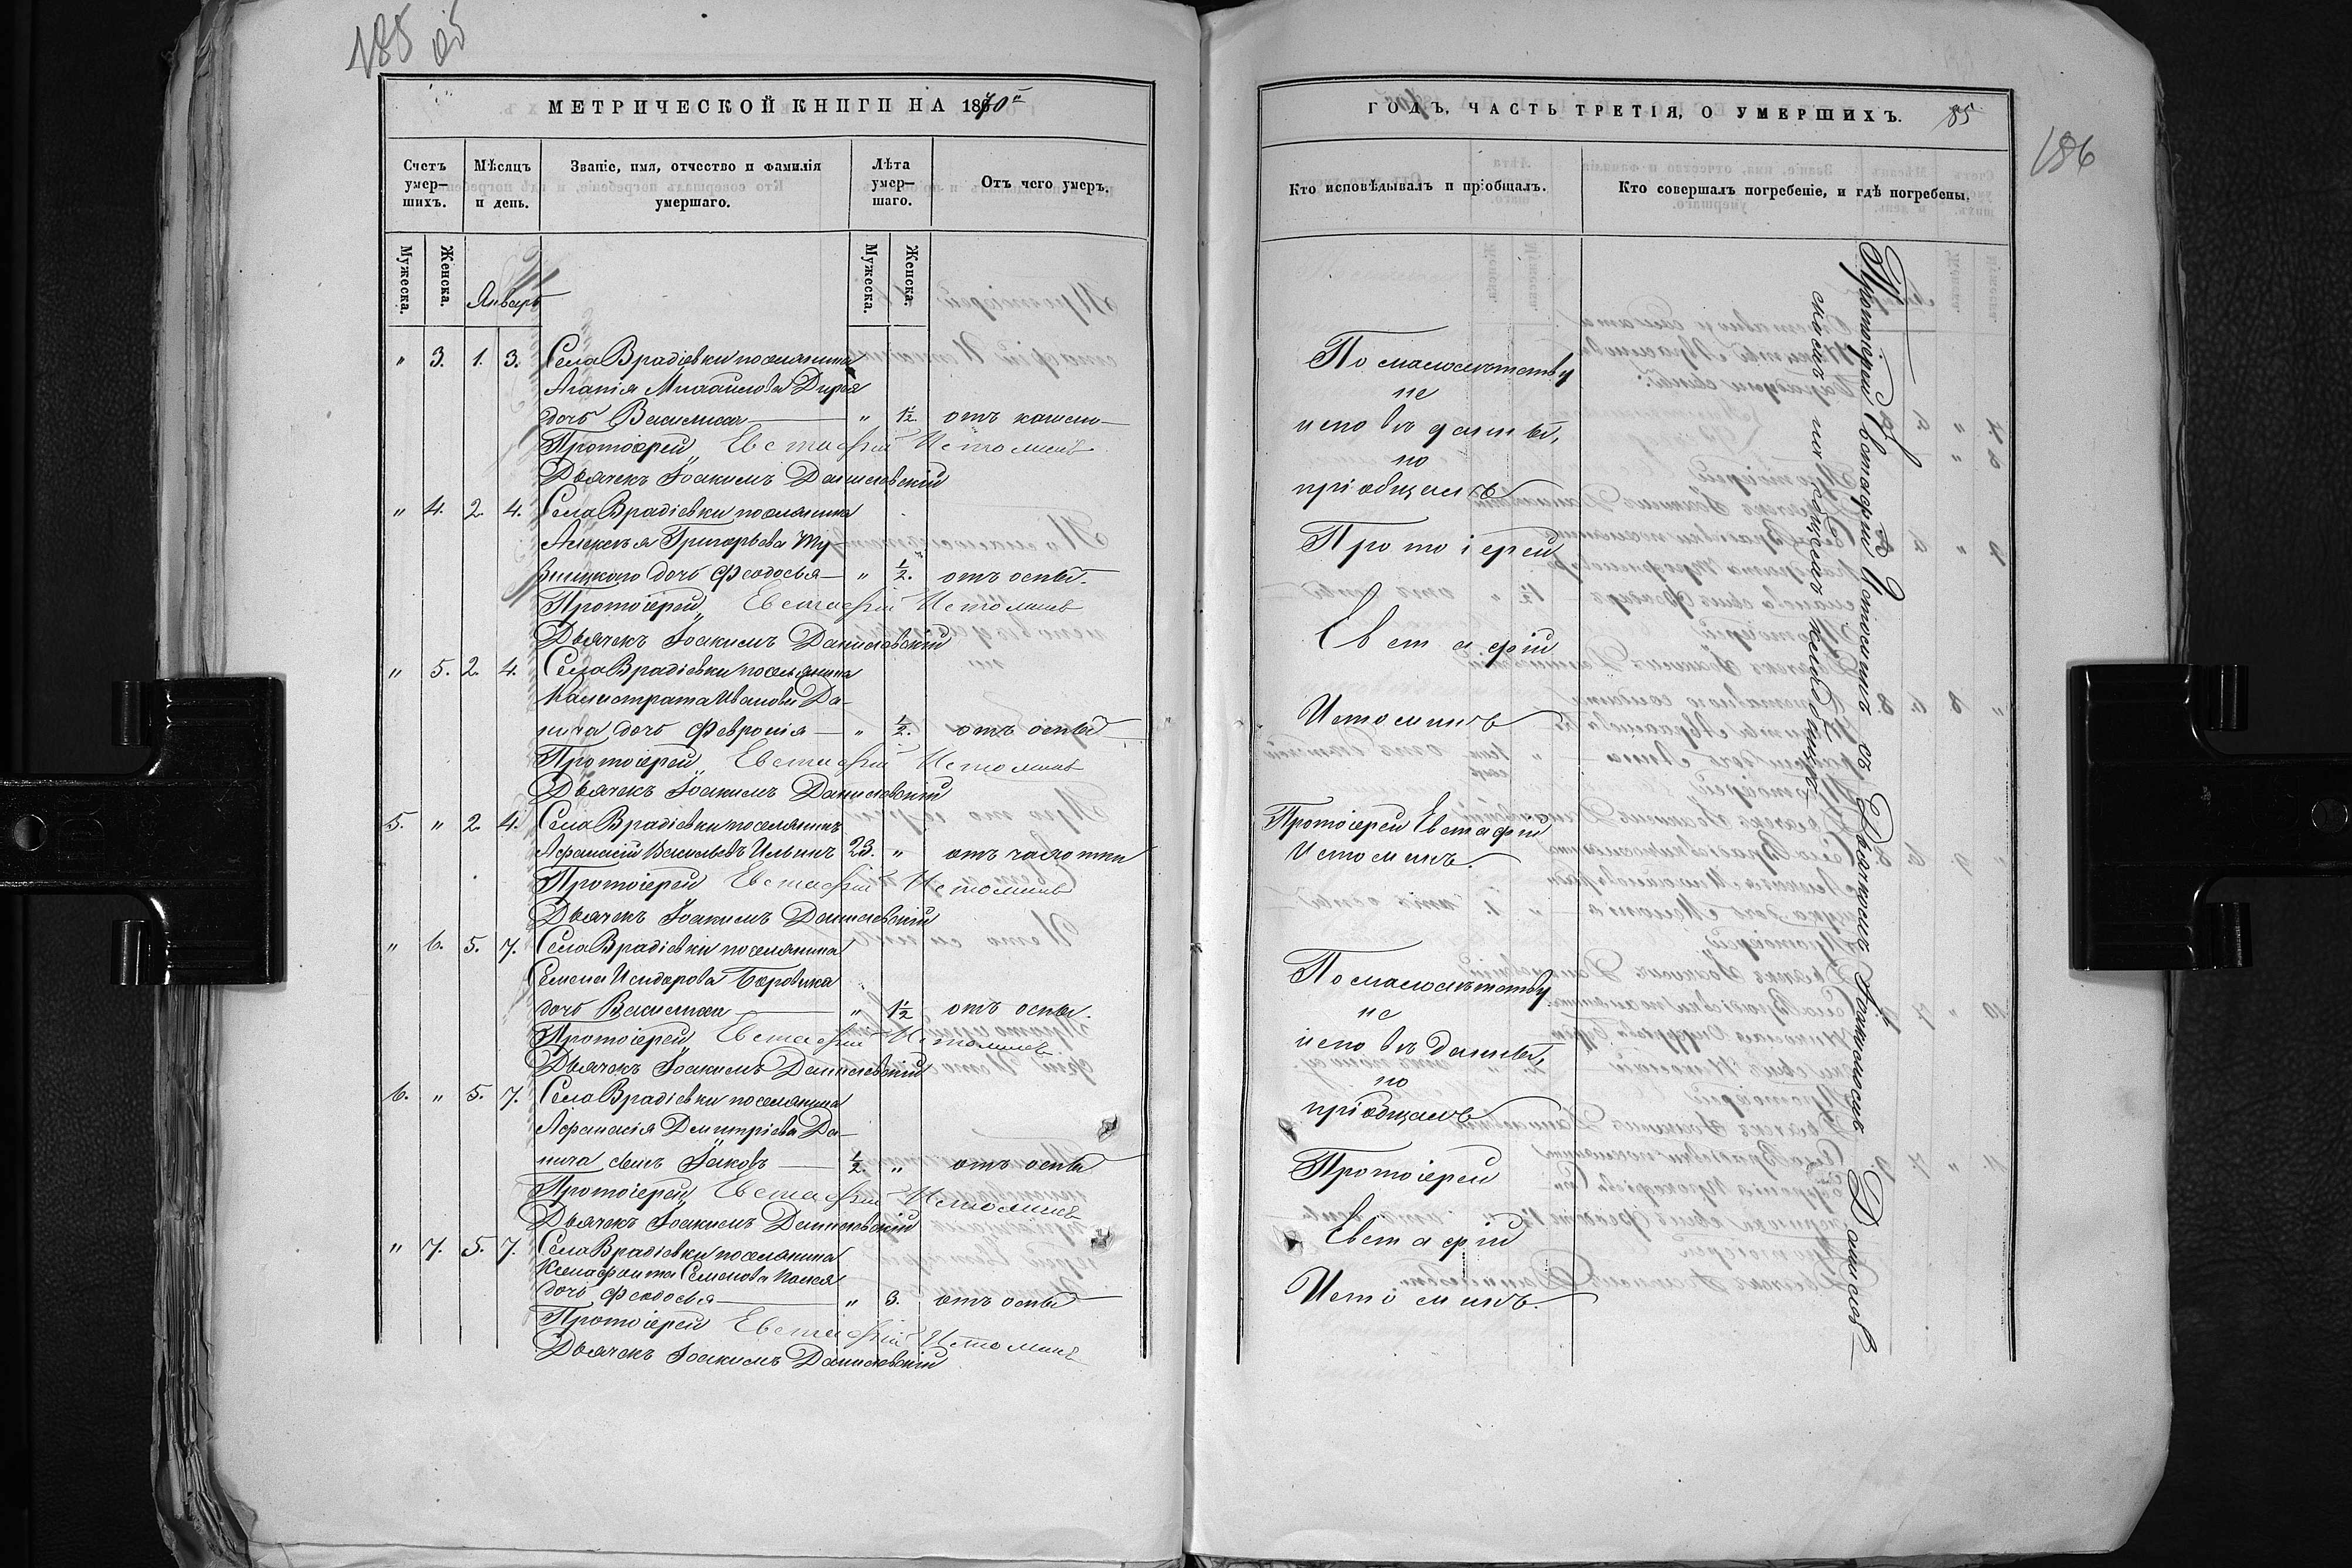 185 об
МЕТРИЧЕСКОЙ КНИГИ НА 1870й
Счетъ умер-шихъ.
Мѣсяцъ и день.
Званіе, имя, отчество и фамилія умершаго.
Лѣта умер-шаго.
Отъ чего умеръ.
Мужеска.
Женска.
Январь
Мужеска.
Женска.
" 3. 1. 3. Села Врадіевки поселянина
Агапія Михайлова
дочь Василиса — " 1½. отъ кашлю
Протоіерей Евстафій Истоминъ
Дьячекъ Іоакимъ Данилевскій
" 4. 2. 4. Села Врадіевки поселянина
Алексѣя Григорьева Ту-
вницкаго дочь Феодосья — " ½. отъ оспы.
Протоіерей Евстафій Истоминъ
Дьячекъ Іоакимъ Данилевскій
" 5. 2. 4. Села Врадіевки поселянина
Калистрата Иванова Да-
нича дочь Февронія — " ½. отъ оспы
Протоіерей Евстафій Истоминъ
Дьячекъ Іоакимъ Данилевскій
5. " 2. 4. Села Врадіевки поселянинъ
Афанасій Васильевъ Ильинъ 23. " отъ чахотки
Протоіерей Евстафій Истоминъ
Дьячекъ Іоакимъ Данилевскій
" 6. 5. 7. Села Врадіевки поселянина
Семена Исидорова Боровика
дочь Василиса — " 1½ отъ оспы.
Протоіерей Евстафій Истоминъ
Дьячекъ Іоакимъ Данилевскій
6. " 5. 7. Села Врадіевки поселянина
Афанасія Дмитріева Да-
нича сынъ Іаковъ — ½. " отъ оспы
Протоіерей Евстафій Истоминъ
Дьячекъ Іоакимъ Данилевскій
" 7. 5. 7. Села Врадіевки поселянина
Ксенафонта Семенова
дочь Феодосья — " 3. отъ оспы
Протоіерей Евстафій Истоминъ
Дьячекъ Іоакимъ Данилевскій
ГОДЪ, ЧАСТЬ ТРЕТІЯ, О УМЕРШИХЪ.
85
186
Кто исповѣдывалъ и пріобщалъ.
Кто совершалъ погребеніе, и гдѣ погребены.
По малолѣтству
не
исповѣданы,
но
пріобщалъ
Протоіерей
Евстафій
Истоминъ
Протоіерей Евстафій
Истоминъ.
По малолѣтству
не
исповѣданы,
но
пріобщалъ
Протоіерей
Евстафій
Истоминъ.
Протоіерей Евстафій Истоминъ съ Дьячкомъ Іоакимомъ Данилев-
скимъ на общемъ кладбищѣ